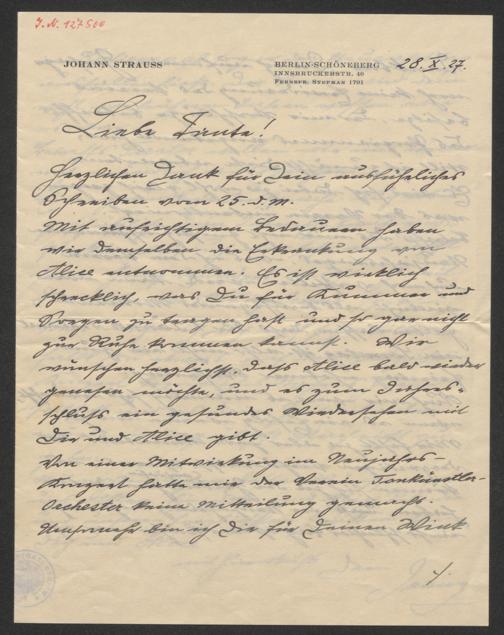 J.N. 127500
JOHANN STRAUSS
BERLIN-SCHÖNEBERG 28.X.27.
INNSBRUCKERSTR. 40
FERNSPR. STEPHAN 1791
Liebe Tante!
Herzlichen Dank für Dein ausführliches
Schreiben vom 25. d. M.
Mit aufrichtigem Bedauern haben
wir demselben die Erkrankung von
Alice entnommen. Es ist wirklich
schrecklich, was Du für Kummer und
Sorgen zu tragen hast und so gar nicht
zur Ruhe kommen kannst. Wir
wünschen herzlichst, dass Alice bald wieder
genesen möchte, und es zum Jahres-
schluss ein gesundes Wiedersehen mit
Dir und Alice gibt.
Von einer Mitwirkung im Neujahrs-
Konzert hatte mir der Verein Tonkünstler-
Orchester keine Mitteilung gemacht.
Umsomehr bin ich Dir für Deinen Wink